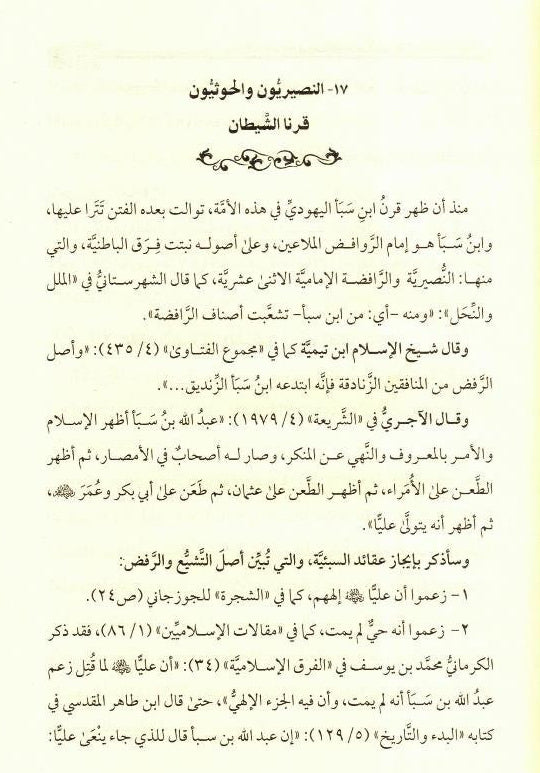 ١٧- النصيريُّون والحوثيُّون
قرنا الشَّيطان
منذ أن ظهر قرنُ ابنِ سَبَأ اليهوديِّ في هذه الأمَّة، توالت بعده الفتن تَتَرا عليها،
وابنُ سَبَأ هو إمام الرَّوافض الملاعين، وعلىٰ أصوله نبتت فِرَق الباطنيَّة، والتي
منها: النُّصيريَّة والرَّافضة الإماميَّة الاثنىٰ عشريَّة، كما قال الشهرستانيُّ في «الملل
والنِّحَل»: «ومنه -أي: من ابن سبأ- تشعَّبت أصناف الرَّافضة».
وقال شيخ الإسلام ابن تيميَّة كما في «مجموع الفتاوىٰ» (٤/ ٤٣٥): «وأصل
الرَّفض من المنافقين الزَّنادقة فإنَّه ابتدعه ابنُ سَبَأ الزِّنديق...».
وقال الآجريُّ في «الشَّريعة» (٤/ ١٩٧٩): «عبدُ الله بنُ سَبَأ أظهر الإسلام
والأمر بالمعروف والنَّهي عن المنكر، وصار له أصحابٌ في الأمصار، ثم أظهر
الطَّعن علىٰ الأُمَراء، ثم أظهر الطَّعن علىٰ عثمان، ثم طَعَن علىٰ أبي بكر وعُمَرَ ﵃،
ثم أظهر أنه يتولَّىٰ عليًّا».
وسأذكر بإيجاز عقائد السبئيَّة، والتي تُبيِّن أصلَ التَّشيُّع والرَّفض:
١- زعموا أن عليًّا ﵁ إلٰههم، كما في «الشجرة» للجوزجاني (ص٢٤).
٢- زعموا أنه حيٌّ لم يمت، كما في «مقالات الإسلاميِّين» (١/ ٨٦)، فقد ذكر
الكرمانيُّ محمَّد بن يوسف في «الفرق الإسلاميَّة» (٣٤): «أن عليًّا ﵁ لما قُتِل زعم
عبدُ الله بن سَبَأ أنه لم يمت، وأن فيه الجزء الإلٰهيُّ»، حتىٰ قال ابن طاهر المقدسي في
كتابه «البدء والتَّاريخ» (٥/ ١٢٩): «إن عبد الله بن سبأ قال للذي جاء ينْعَىٰ عليًّا: